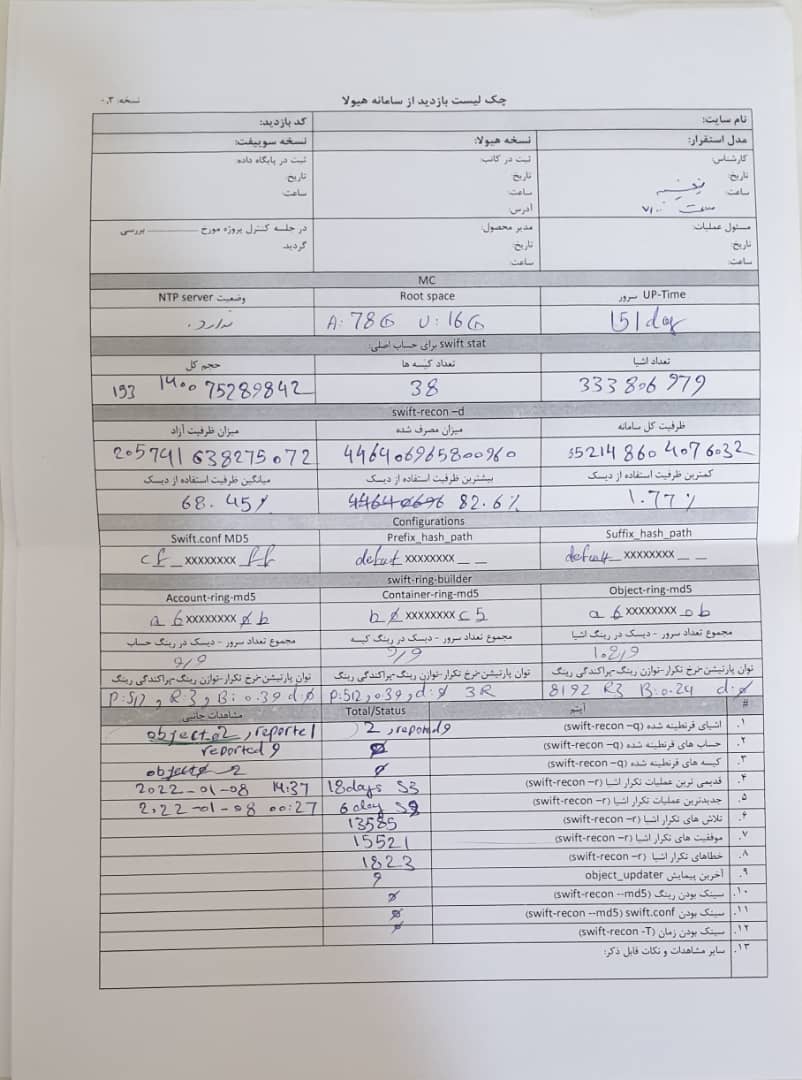 چک لیست بازدید از سامانه هیولا
نسخه: ۰.۳
نام سایت:
کد بازدید:
مدل استقرار:
نسخه هیولا:
نسخه سوییفت:
کارشناس:
تاریخ:
ساعت:
ثبت در کتاب:
تاریخ:
ساعت:
آدرس:
ثبت در پایگاه داده:
تاریخ:
ساعت:
مسئول عملیات:
تاریخ:
ساعت:
مدیر محصول:
تاریخ:
ساعت:
در جلسه کنترل پروژه مورخ ............ بررسی
گردید.
MC
UP-Time سرور
Root space
وضعیت NTP server
151 day
A: 78G U: 16G
ندارد.
swift stat برای حساب اصلی:
تعداد اشیا
تعداد کیسه ها
حجم کل
333806979
38
193 1400 75289842
swift-recon –d
ظرفیت کل سامانه
میزان مصرف شده
میزان ظرفیت آزاد
446406965800960
205741638275072
کمترین ظرفیت استفاده از دیسک
بیشترین ظرفیت استفاده از دیسک
میانگین ظرفیت استفاده از دیسک
1.77%
82.6%
68.45%
Configurations
Suffix_hash_path
Prefix_hash_path
Swift.conf MD5
default xxxxxxxx _ _
xxxxxxxx _ _
cf_xxxxxxxx ff
swift-ring-builder
Object-ring-md5
Container-ring-md5
Account-ring-md5
a6 xxxxxxxx 0b
b0 xxxxxxxx c5
a6 xxxxxxxx 0b
مجموع تعداد سرور - دیسک در رینگ اشیا
مجموع تعداد سرور - دیسک در رینگ کیسه
مجموع تعداد سرور - دیسک در رینگ حساب
9/9
9/9
توان پارتیشن-نرخ تکرار-توازن رینگ-پراکندگی رینگ
توان پارتیشن-نرخ تکرار-توازن رینگ-پراکندگی رینگ
توان پارتیشن-نرخ تکرار-توازن رینگ-پراکندگی رینگ
8192 R3 B:0.24 d:0
P:512, 0.39, d:0 3R
P:512, R:3, B:0.39 d:0
#
آیتم
Total/Status
مشاهدات جانبی
۱. اشیای قرنطینه شده (swift-recon –q)
2, reported 9
object 02, reporte1
۲. حساب های قرنطینه شده (swift-recon –q)
0
reported 9
۳. کیسه های قرنطینه شده (swift-recon –q)
0
۴. قدیمی ترین عملیات تکرار اشیا (swift-recon –r)
18days S3
2022-01-08 14:37
۵. جدیدترین عملیات تکرار اشیا (swift-recon –r)
6 day
2022-01-08 00:27
۶. تلاش های تکرار اشیا (swift-recon –r)
13585
۷. موفقیت های تکرار اشیا (swift-recon –r)
15521
۸. خطاهای تکرار اشیا (swift-recon –r)
1823
۹. آخرین پیمایش object_updater
9
۱۰. سینک بودن رینگ (swift-recon --md5)
0
۱۱. سینک بودن swift.conf (swift-recon --md5)
0
۱۲. سینک بودن زمان (swift-recon -T)
0
۱۳. سایر مشاهدات و نکات قابل ذکر: